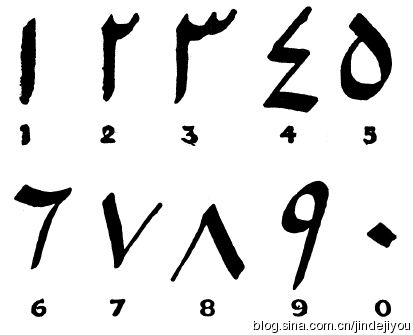 ١ ٢ ٣ ٤ ٥
1 2 3 4 5
٦ ٧ ٨ ٩ ٠
6 7 8 9 0
blog.sina.com.cn/jindejiyou